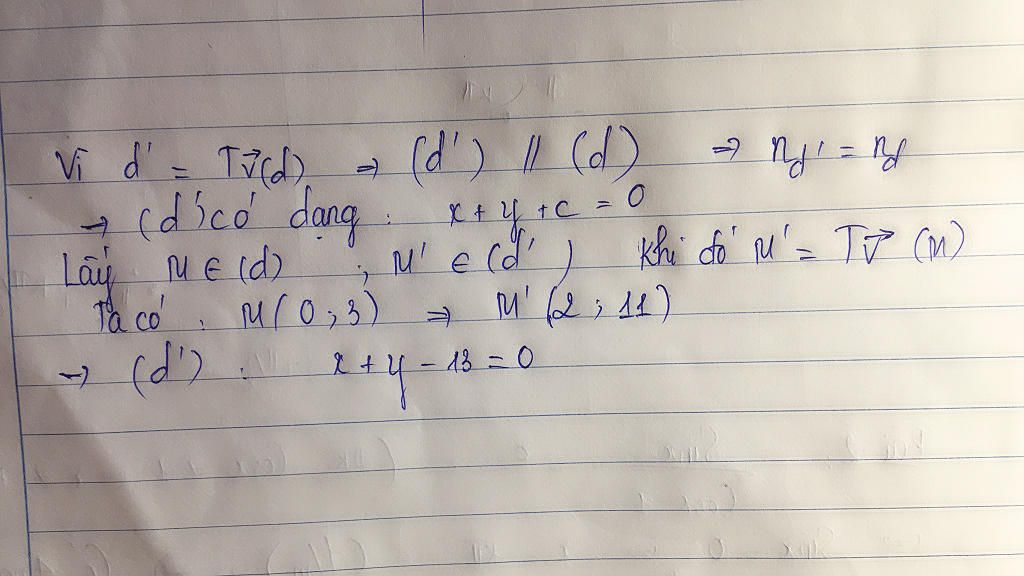 Vì d' = Tv⃗(d) ⇒ (d') // (d) ⇒ n_d' = n_d
→ (d') có dạng : x + y + c = 0
Lấy M ∈ (d) ; M' ∈ (d') Khi đó M' = Tv⃗ (M)
Ta có : M(0;3) ⇒ M'(2;11)
→ (d') : x + y - 13 = 0